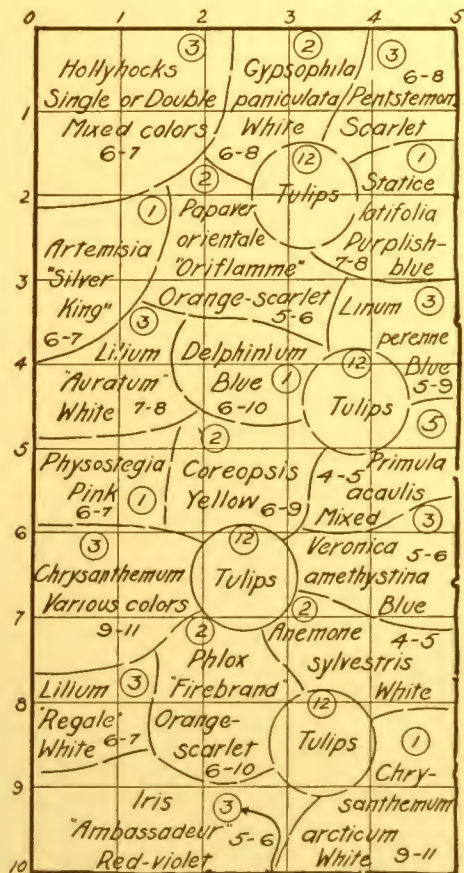 0 1 2 3 4 5
1
2
3
4
5
6
7
8
9
10
3
Hollyhocks
Single or Double
Mixed colors
6-7
2
Gypsophila
paniculata
White
6-8
3
6-8
Pentstemon
Scarlet
12
Tulips
1
Statice
latifolia
Purplish-
blue
7-8
1
Artemisia
"Silver
King"
6-7
2
Papaver
orientale
"Oriflamme"
Orange-scarlet
5-6
Linum 3
perenne
Blue
5-9
3
Lilium
"Auratum"
White 7-8
Delphinium
Blue 1
6-10
12
Tulips
5
Primula
acaulis
Mixed
4-5
Physostegia
Pink 1
6-7
2
Coreopsis
Yellow 6-9
3
Veronica 5-6
amethystina
Blue
3
Chrysanthemum
Various colors
9-11
12
Tulips
2
Anemone 4-5
sylvestris
White
Lilium 3
"Regale"
White 6-7
2
Phlox
"Firebrand"
Orange-
scarlet
6-10
12
Tulips
1
Chry-
santhemum
arcticum
White 9-11
Iris 3
"Ambassadeur" 5-6
Red-violet